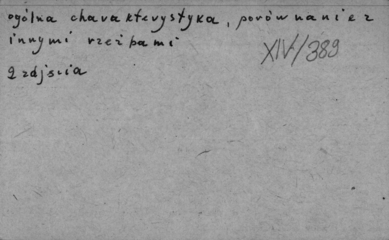 ogólna charakterystyka, porównanie z
innymi rzeźbami
XIV/389
2 zdjęcia